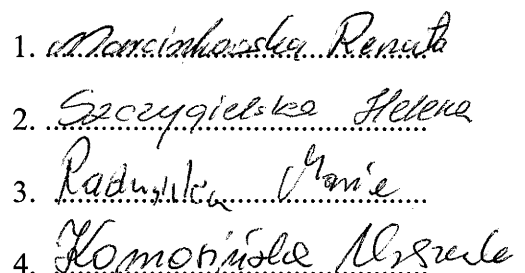 1. Marcinkowska Renata
2. Szczygielska Helena
3. Maria
4. Komosińska Urszula